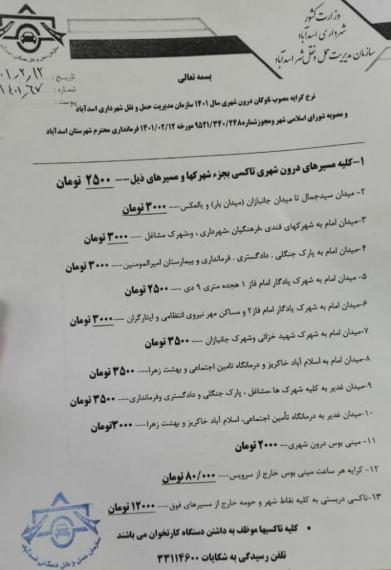 وزارت کشور
شهرداری اسدآباد
سازمان مدیریت حمل و نقل شهر اسدآباد
تاریخ: ۰۱٫۲٫۱۲
شماره: ۱۴۰۱٫۶۷
پیوست:
بسمه تعالی
نرخ کرایه مصوب ناوگان درون شهری سال ۱۴۰۱ سازمان مدیریت حمل و نقل شهرداری اسدآباد
و مصوبه شورای اسلامی شهر و مجوزشماره ۹۵۲۱/۳۴۰/۲۴۸ مورخه ۱۴۰۱/۰۲/۱۲ فرمانداری محترم شهرستان اسدآباد
۱-کلیه مسیرهای درون شهری تاکسی بجزء شهرکها و مسیرهای ذیل---- ۲۵۰۰ تومان
۲- میدان سیدجمال تا میدان جانبازان (میدان بار) و بالعکس---- ۳۰۰۰ تومان
۳-میدان امام به شهرکهای قندی ،فرهنگیان ،شهرداری ، وشهرک مشاغل ---- ۳۰۰۰ تومان
۴-میدان امام به پارک جنگلی . دادگستری . فرمانداری و بیمارستان امیرالمومنین---- ۳۰۰۰ تومان
۵- میدان امام به شهرک یادگار امام فاز ۱ هجده متری ۹ دی ---- ۲۵۰۰ تومان
۶-میدان امام به شهرک یادگار امام فاز۲ و مساکن مهر نیروی انتظامی و ایثارگران ----۳۰۰۰ تومان
۷-میدان امام به شهرک شهید خزائی وشهرک جانبازان ---- ۳۵۰۰ تومان
۸-میدان امام به اسلام آباد خاکریز و درمانگاه تامین اجتماعی و بهشت زهرا---- ۳۵۰۰ تومان
۹-میدان غدیر به کلیه شهرک ها ،مشاغل ، پارک جنگلی و دادگستری وفرمانداری---- ۳۵۰۰ تومان
۱۰-میدان غدیر به درمانگاه تأمین اجتماعی، اسلام آباد خاکریز و بهشت زهرا---- ۳۰۰۰تومان
۱۱- مینی بوس درون شهری---- ۲۰۰۰ تومان
۱۲- کرایه هر ساعت مینی بوس خارج از سرویس---- ۸۰/۰۰۰ تومان
۱۳-تاکسی دربستی به کلیه نقاط شهر و حومه خارج از مسیرهای فوق---- ۱۲۰۰۰ تومان
• کلیه تاکسیها موظف به داشتن دستگاه کارتخوان می باشند
تلفن رسیدگی به شکایات ۳۳۱۱۴۶۰۰